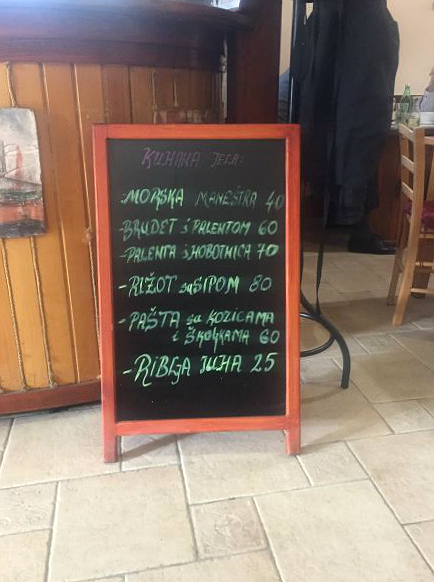 KUHANA JELA:
-MORSKA MANEŠTRA 40
-BRUDET S PALENTOM 60
-PALENTA I HOBOTNICA 70
-RIŽOT sa SIPOM 80
-PAŠTA sa KOZICAMA
i ŠKOLJKAMA 60
-RIBLJA JUHA 25